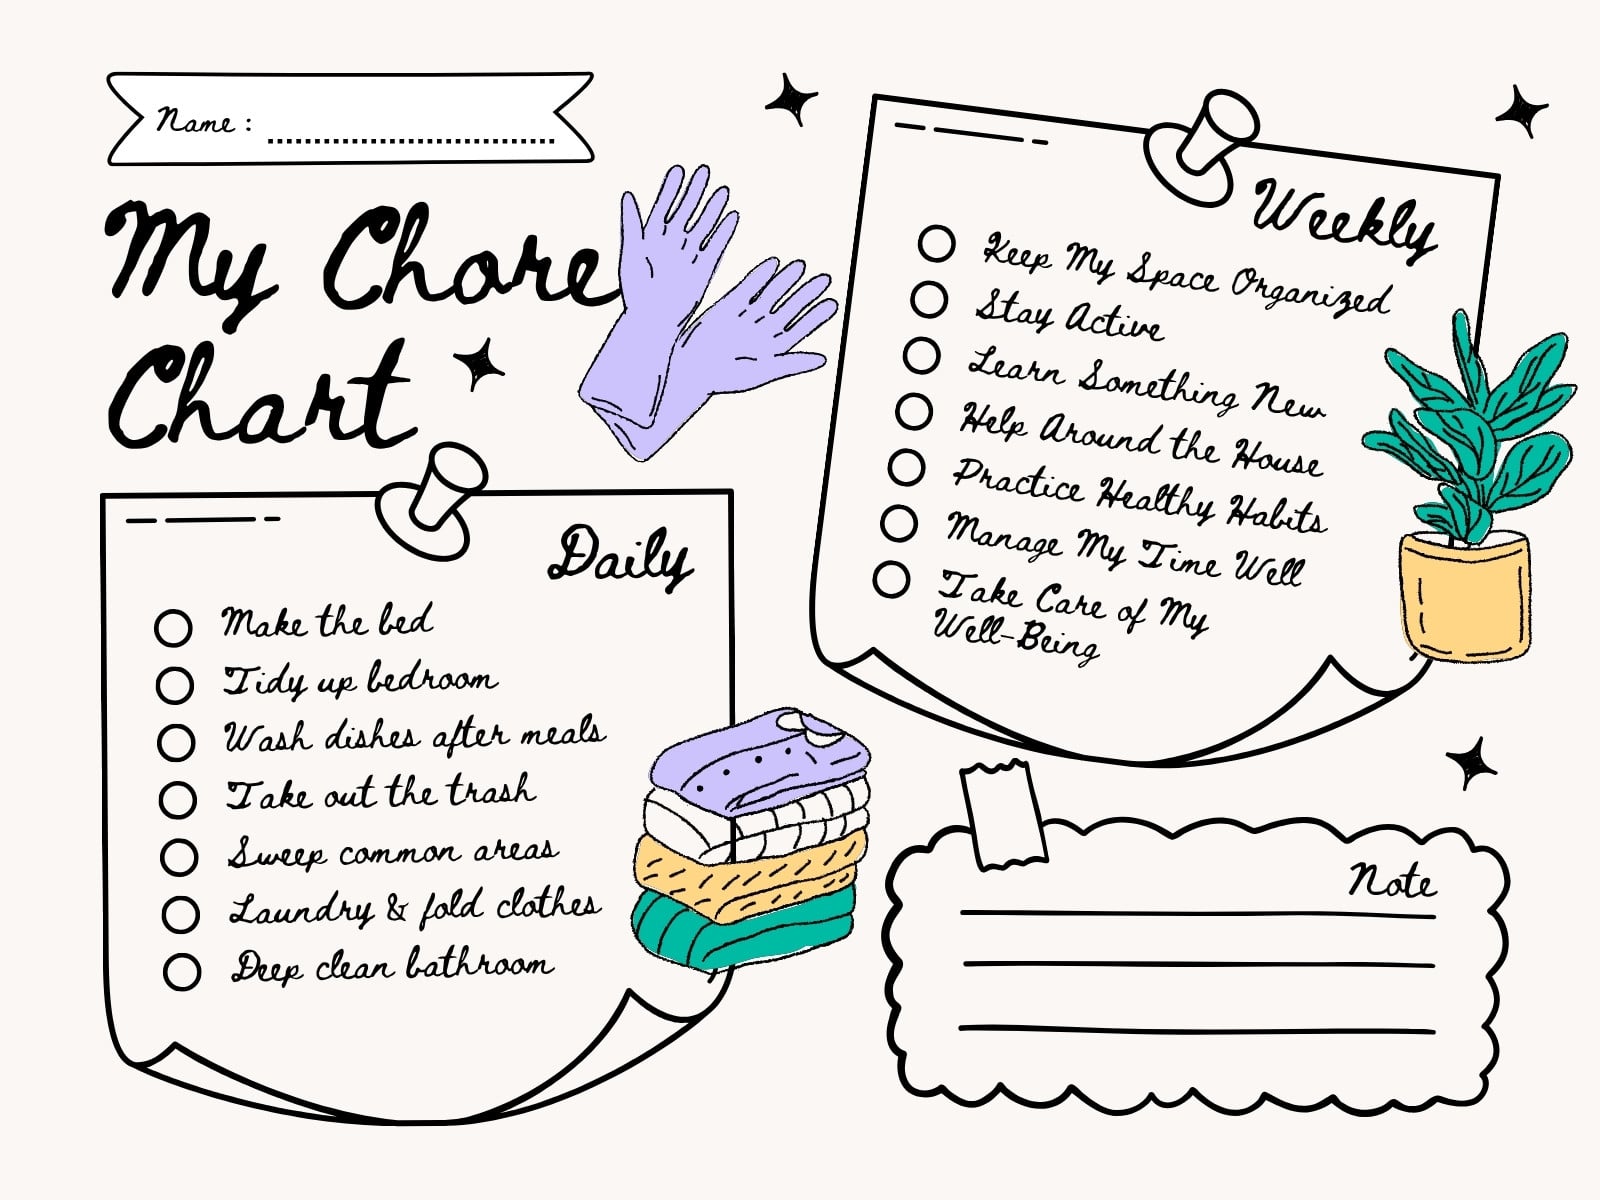 Name :
My Chore
Chart
Daily
Make the bed
Tidy up bedroom
Wash dishes after meals
Take out the trash
Sweep common areas
Laundry & fold clothes
Deep clean bathroom
Weekly
Keep My Space Organized
Stay Active
Learn Something New
Help Around the House
Practice Healthy Habits
Manage My Time Well
Take Care of My
Well-Being
Note